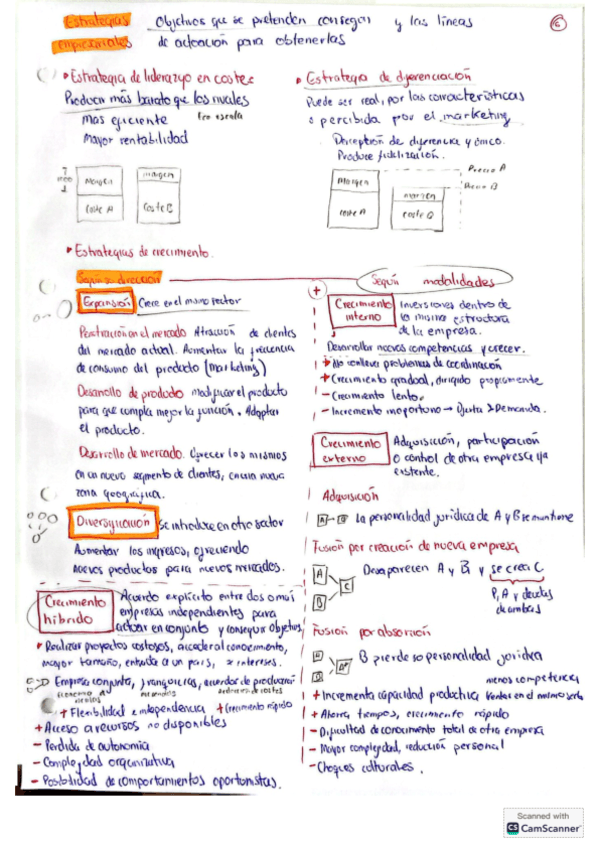 Estrategias Objetivos que se pretenden conseguir y las líneas 6
empresariales de actuación para obtenerlas
Estrategia de liderazgo en costes
Producir más barato que los rivales
más eficiente Eco escala
Mayor rentabilidad
Margen margen
coste A coste B
Estrategia de diferenciación
Puede ser real, por las características
o percibida por el marketing
Percepción de diferencia y único.
Produce fidelización.
Margen margen Precio A
coste A coste B Precio B
Estrategias de crecimiento.
Según su dirección
Expansión Crece en el mismo sector
Penetración en el mercado Atracción de clientes
del mercado actual. Aumentar la frecuencia
de consumo del producto (marketing)
Desarrollo de producto modificar el producto
para que cumpla mejor la función. Adaptar
el producto.
Desarrollo de mercado. Ofrecer los mismos
en un nuevo segmento de clientes, en una nueva
zona geográfica.
Diversificación se introduce en otro sector
Aumentar los ingresos, ofreciendo
nuevos productos para nuevos mercados.
Crecimiento híbrido Acuerdo explícito entre dos o más
empresas independientes para
actuar en conjunto y conseguir objetivos
Realizar proyectos costosos, acceder al conocimiento,
mayor tamaño, entrada a un país, intereses.
Empresa conjunta, franquicias, acuerdo de producción
+ Flexibilidad e independencia + Crecimiento rápido
+ Acceso a recursos no disponibles
- Perdida de autonomía
- Complejidad organizativa
- Posibilidad de comportamientos oportunistas.
Según modalidades
+
Crecimiento interno Inversiones dentro de
la misma estructura
de la empresa.
Desarrollar nuevas competencias y crecer.
+ No conlleva problemas de coordinación
+ Crecimiento gradual, dirigido propiamente
- Crecimiento lento.
- Incremento inoportuno → Oferta > Demanda.
Crecimiento externo Adquisición, participación
o control de otra empresa ya
existente.
Adquisición
A - B La personalidad jurídica de A y B se mantiene
Fusión por creación de nueva empresa
A B C Desaparecen A y B y se crea C
P, A y deudas
de ambas
Fusión por absorción
B A+ B pierde su personalidad jurídica
menos competencia
+ Incrementa capacidad productiva
+ Ahorra tiempos, crecimiento rápido
- Dificultad de conocimiento total de otra empresa
- Mayor complejidad, reducción personal
- Choques culturales.
Scanned with
CS CamScanner